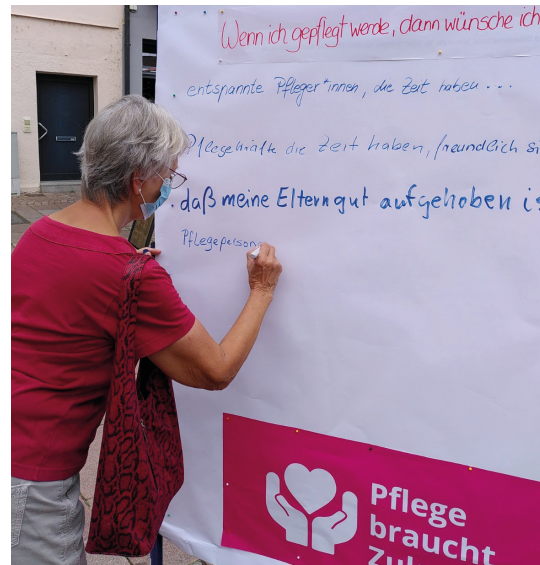 Wenn ich gepflegt werde, dann wünsche ich
entspannte Pfleger*innen, die Zeit haben...
Pflegekräfte die Zeit haben, freundlich
daß meine Eltern gut aufgehoben
Pflegeperson
Pflege
braucht